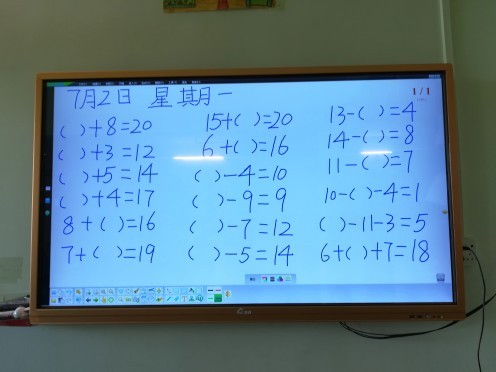 7月2日 星期一
1/1
( )+8=20
( )+3=12
( )+5=14
( )+4=17
8+( )=16
7+( )=19
15+( )=20
6+( )=16
( )-4=10
( )-9=9
( )-7=12
( )-5=14
13-( )=4
14-( )=8
11-( )=7
10-( )-4=1
( )-11-3=5
6+( )+7=18